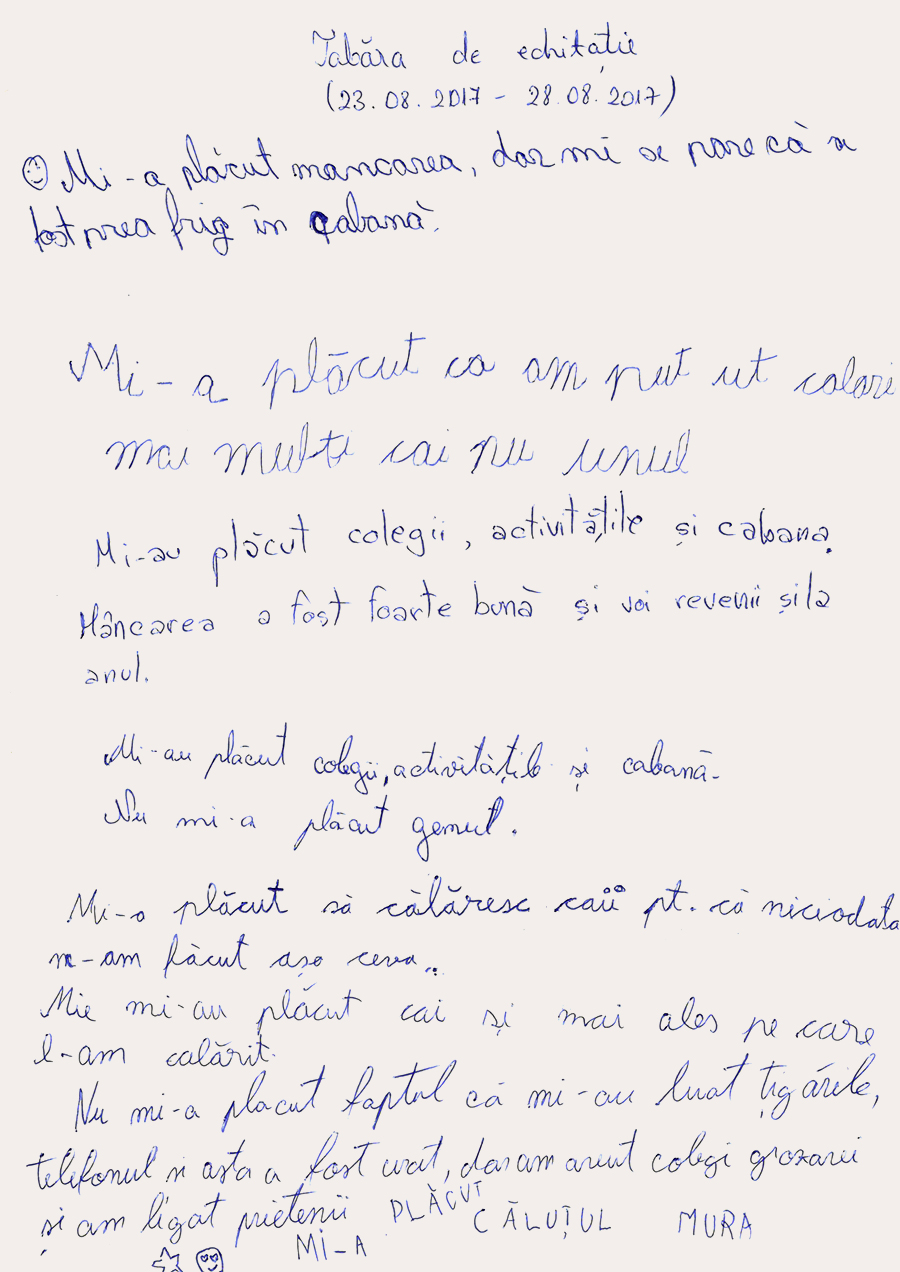 Tabăra de echitație
(23.08.2017 - 28.08.2017)
Mi-a plăcut mancarea, dar mi se pare că a
fost prea frig în cabană.
Mi-a plăcut ca am put ut calari
mai multi cai nu unul
Mi-au plăcut colegii, activitățile și cabana.
Mâncarea a fost foarte bună și voi revenii și la
anul.
Mi-au plăcut colegii, activitățile și cabană.
Nu mi-a plăcut gemul.
Mi-a plăcut să călăresc caii pt. că niciodata
n-am făcut așa ceva..
Mie mi-au plăcut cai și mai ales pe care
l-am calărit.
Nu mi-a placut faptul că mi-au luat țigările,
telefonul si asta a fost urat, dar am avut colegi grozavi
și am ligat prietenii
MI-A PLĂCUT CĂLUȚUL MURA